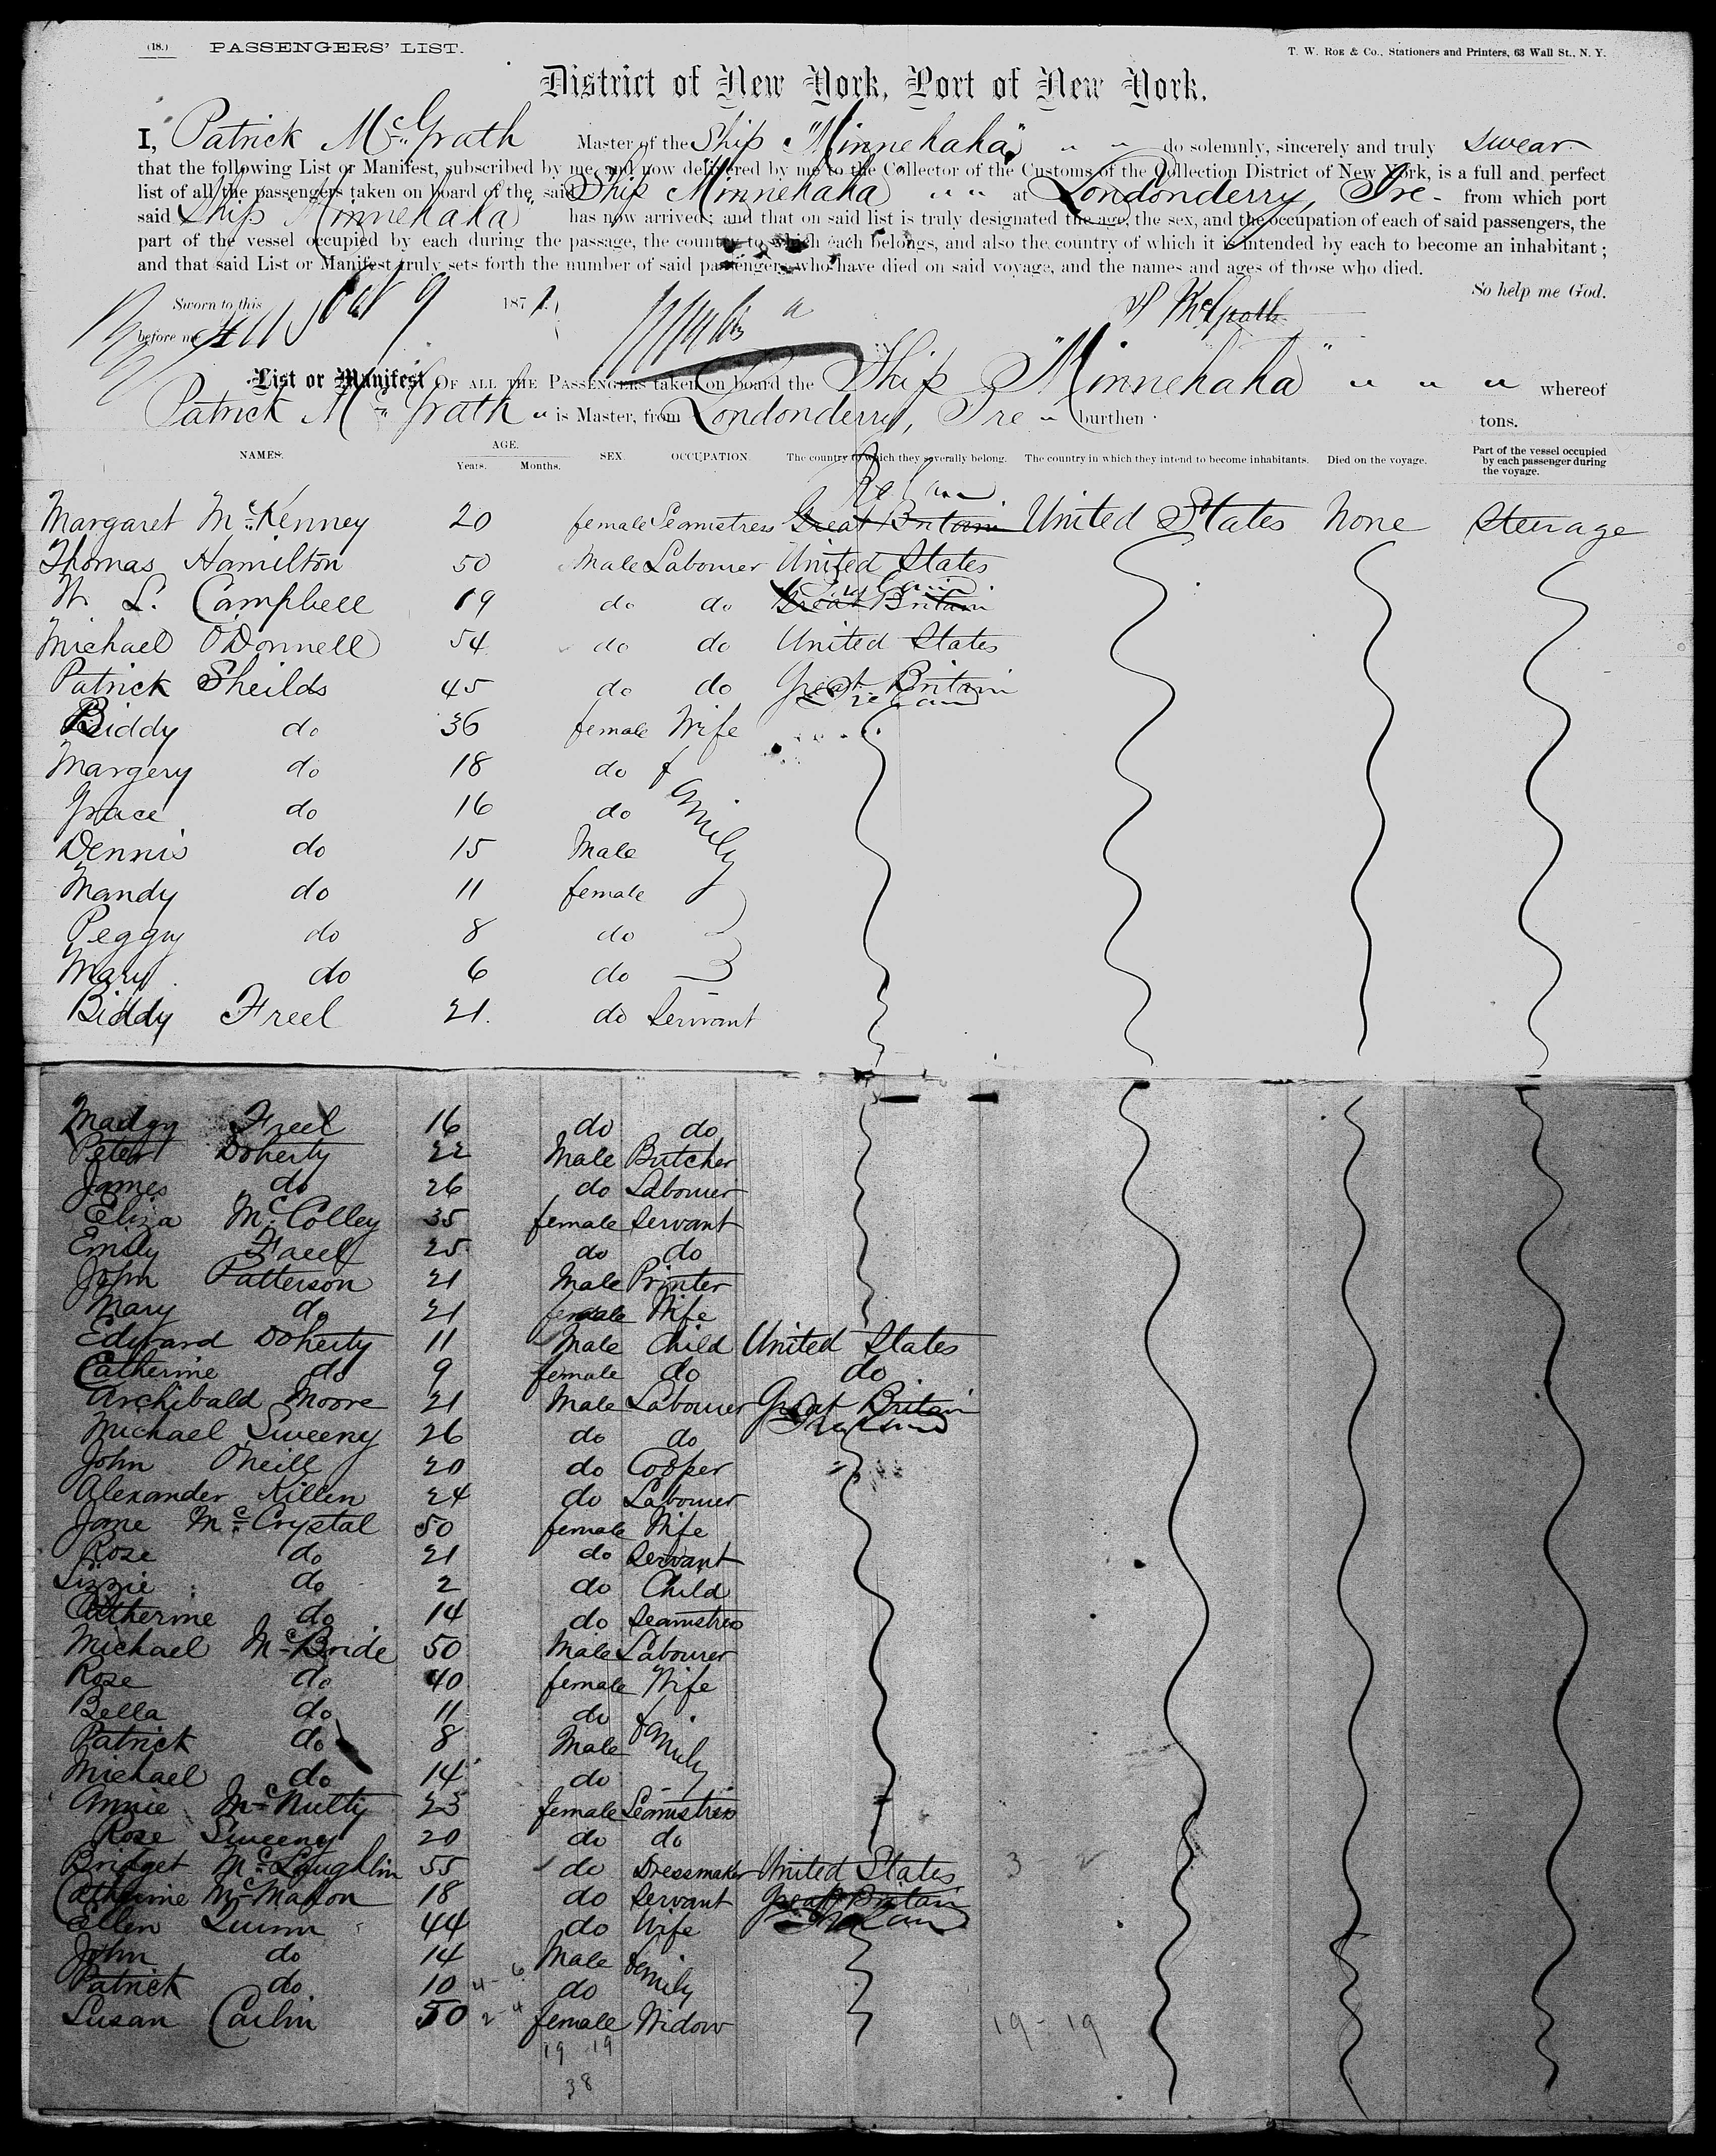 (18.) PASSENGERS' LIST.
T. W. ROE & Co., Stationers and Printers, 63 Wall St., N. Y.
District of New York, Port of New York.
I, Patrick McGrath Master of the Ship "Minnehaha" " " do solemnly, sincerely and truly swear
that the following List or Manifest, subscribed by me, and now delivered by me to the Collector of the Customs of the Collection District of New York, is a full and perfect
list of all the passengers taken on board of the said Ship Minnehaha " " at Londonderry, Ire- from which port
said Ship Minnehaha" has now arrived; and that on said list is truly designated the age, the sex, and the occupation of each of said passengers, the
part of the vessel occupied by each during the passage, the country to which each belongs, and also the country of which it is intended by each to become an inhabitant;
and that said List or Manifest truly sets forth the number of said passengers who have died on said voyage, and the names and ages of those who died.
So help me God.
Sworn to this 9 1871.
before me
P McGrath
List or Manifest OF ALL THE PASSENGERS taken on board the Ship "Minnehaha" " " " whereof
Patrick McGrath " is Master, from Londonderry, Ire " burthen tons.
NAMES. AGE. Years. Months. SEX. OCCUPATION. The country to which they severally belong. The country in which they intend to become inhabitants. Died on the voyage. Part of the vessel occupied by each passenger during the voyage.
Ireland
Margaret McKenney 20 female Seamstress Great Britain United States None Steerage
Thomas Hamilton 50 Male Labourer United States
Ireland
W. L. Campbell 19 do do Great Britain
Michael O'Donnell 54 do do United States
Patrick Sheilds 45 do do Great Britain
Ireland
Biddy do 36 female Wife
Margery do 18 do family
Grace do 16 do
Dennis do 15 Male
Mandy do 11 female
Peggy do 8 do
Mary do 6 do
Biddy Freel 21. do Servant
Madgy Freel 16 do do
Peter Doherty 22 Male Butcher
James do 26 do Labourer
Eliza McColley 35 female Servant
Emily 25 do do
John Patterson 21 Male Printer
Mary do 21 female Wife
Edward Doherty 11 Male Child United States
Catherine do 9 female do do
Archibald Moore 21 Male Labourer Great Britain
Ireland
Michael Sweeny 26 do do
John O'Neill 20 do Cooper
Alexander Killen 24 do Labourer
Jane McCrystal 50 female Wife
Rose do 21 do Servant
Lizzie do 2 do Child
Catherine do 14 do Seamstress
Michael McBride 50 Male Labourer
Rose do 40 female Wife
Bella do 11 do family
Patrick do 8 Male
Michael do 14 do
Annie McNulty 23 female Seamstress
Rose Sweeny 20 do do
Bridget McLaughlin 55 do Dressmaker United States 3 - 2
Catherine McMahon 18 do Servant Great Britain
Ireland
Ellen Quinn 44 do Wife
John do 14 Male family
Patrick do 10 4-6 do
Susan Carlin 50 2-4 female Widow 19-19
19 19
38